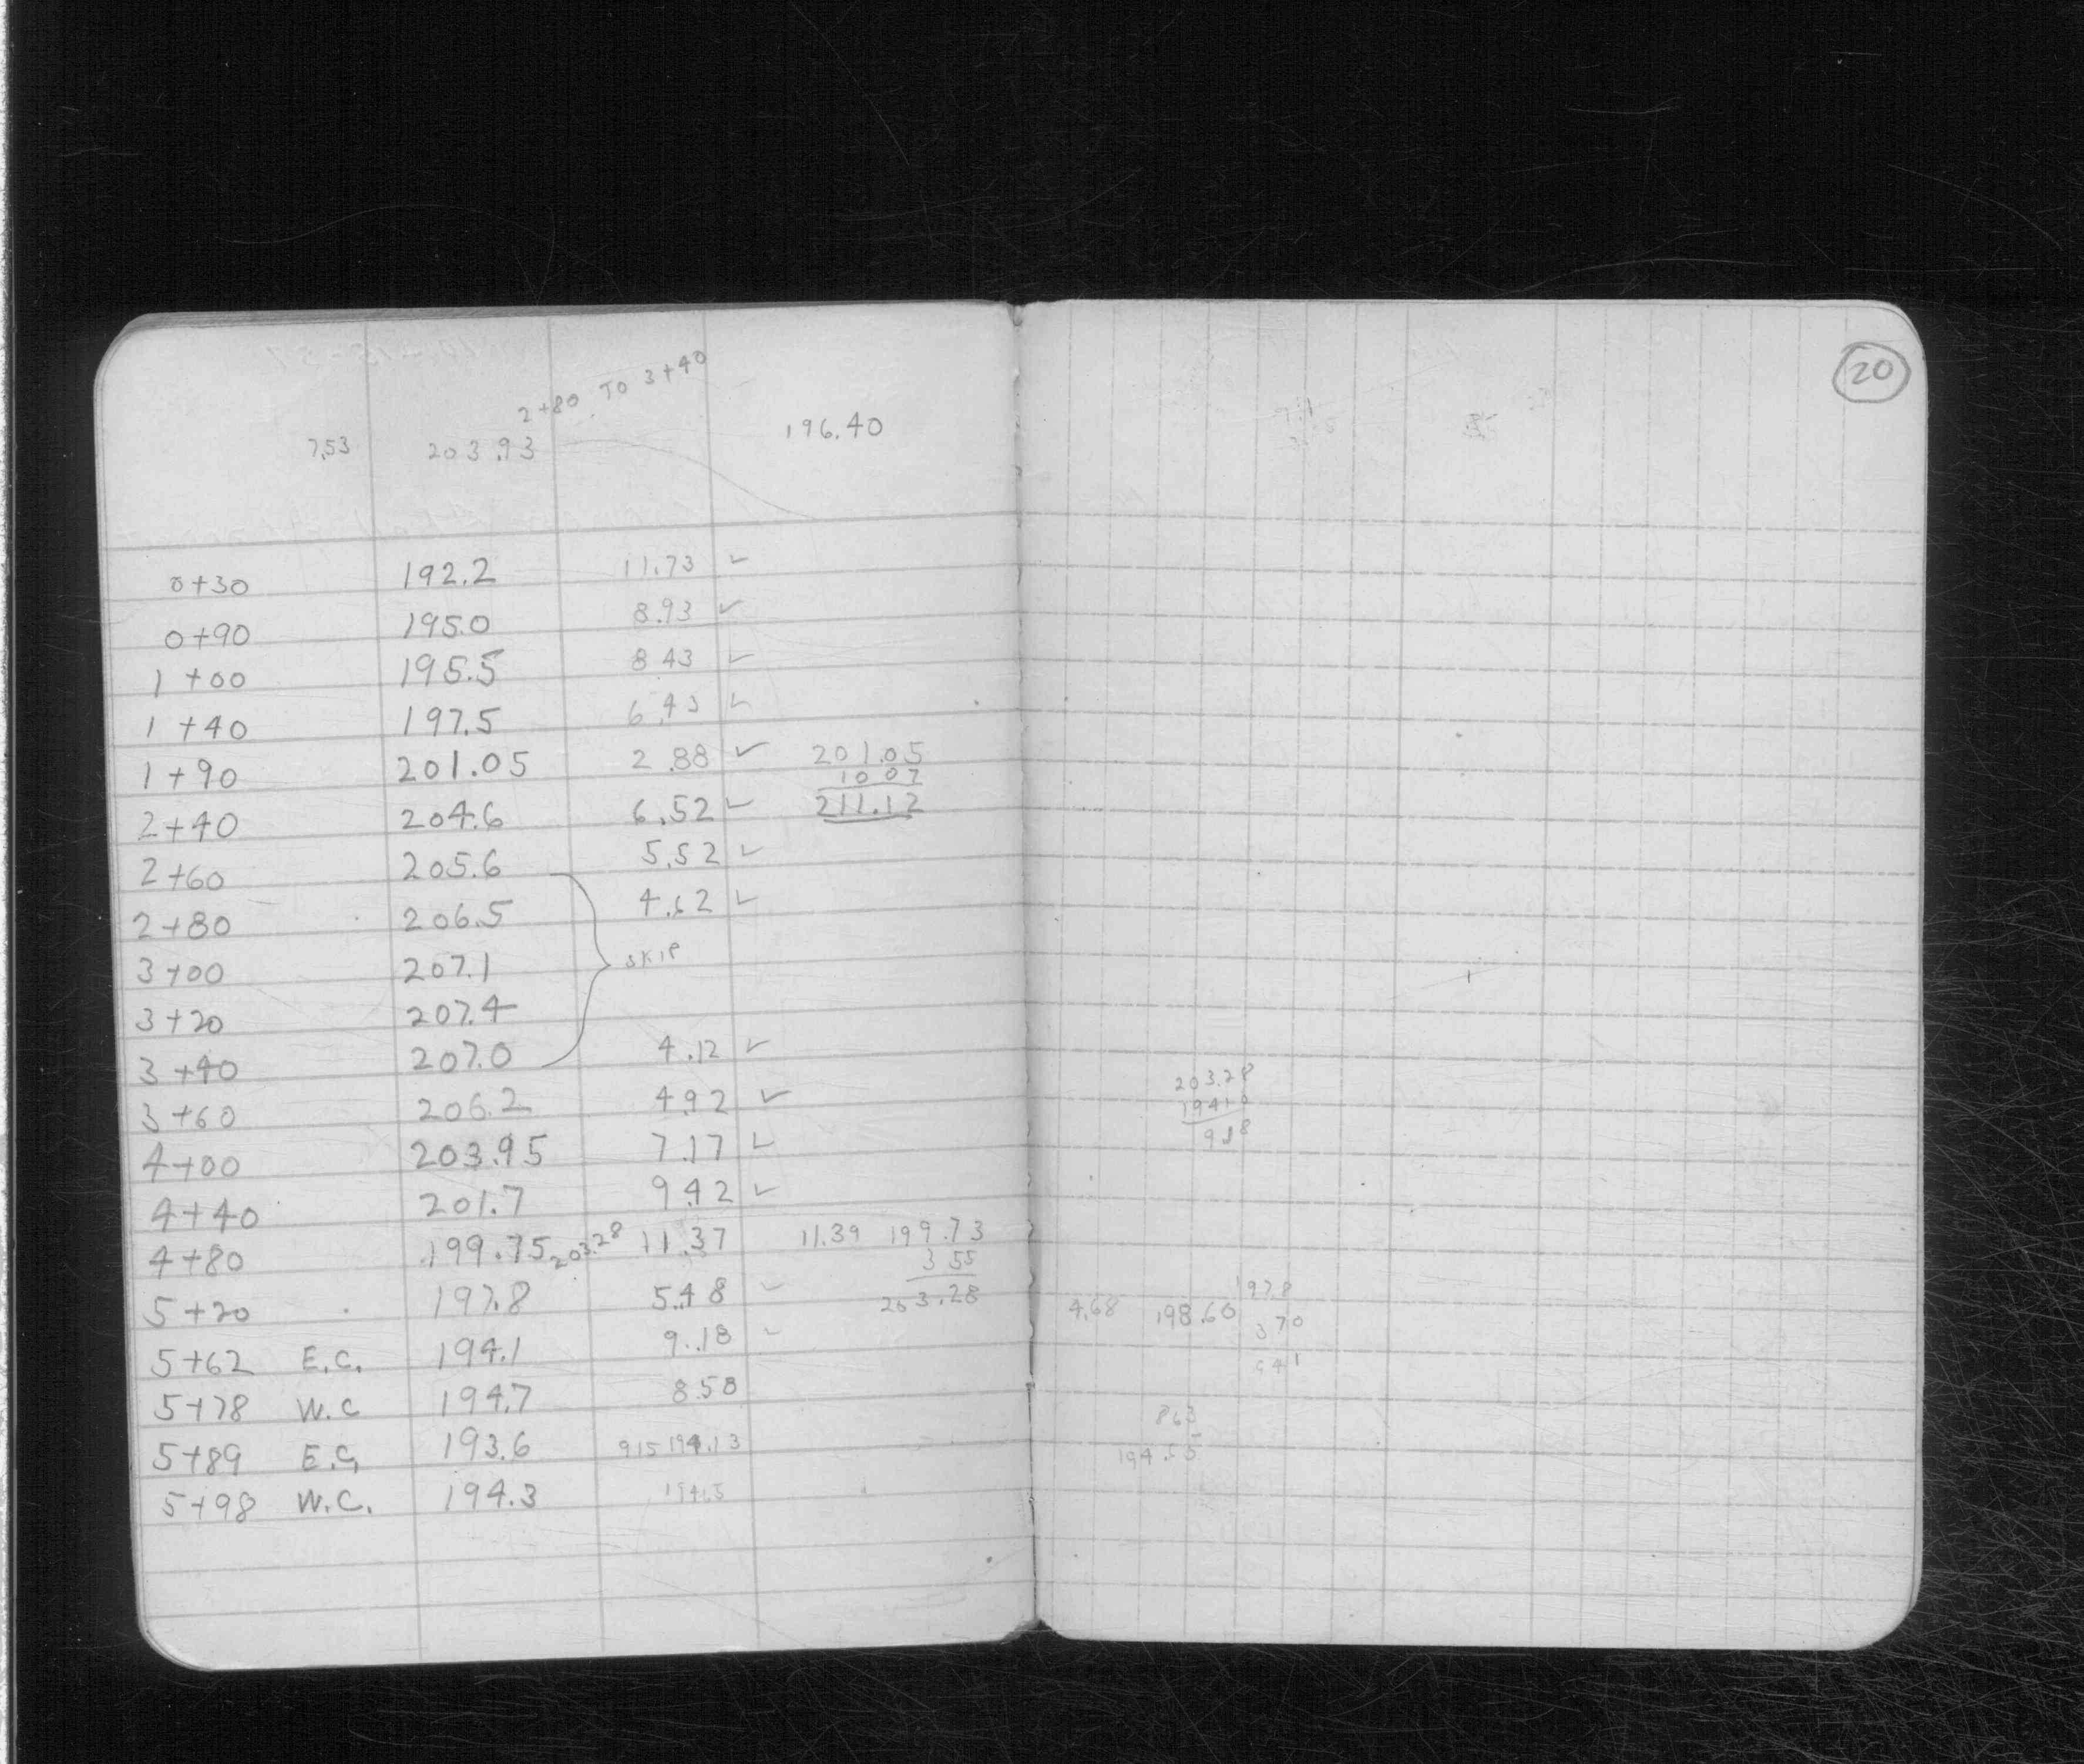 20
2+80 TO 3+40
7.53 203.93 196.40
0+30 192.2 11.73 ✓
0+90 195.0 8.93 ✓
1+00 195.5 8 43 ✓
1+40 197.5 6.43 ✓
1+90 201.05 2.88 ✓ 201.05
10 07
2+40 204.6 6.52 ✓ 211.12
2+60 205.6 5.52 ✓
2+80 206.5 4.62 ✓
3+00 207.1 SKIP
3+20 207.4
3+40 207.0 4.12 ✓
3+60 206.2 4.92 ✓
4+00 203.95 7.17 ✓
4+40 201.7 9.42 ✓
4+80 199.75 203.28 11.37 11.39 199.73
3 55
5+20 197.8 5.48 ✓ 203.28
5+62 E.C. 194.1 9.18 ✓
5+78 W.C 194.7 8.58
5+89 E.C. 193.6 9.15 194.13
5+98 W.C. 194.3
203.28
194.10
9 18
197.8
4.68 198.60
3 70
94 1
8.63